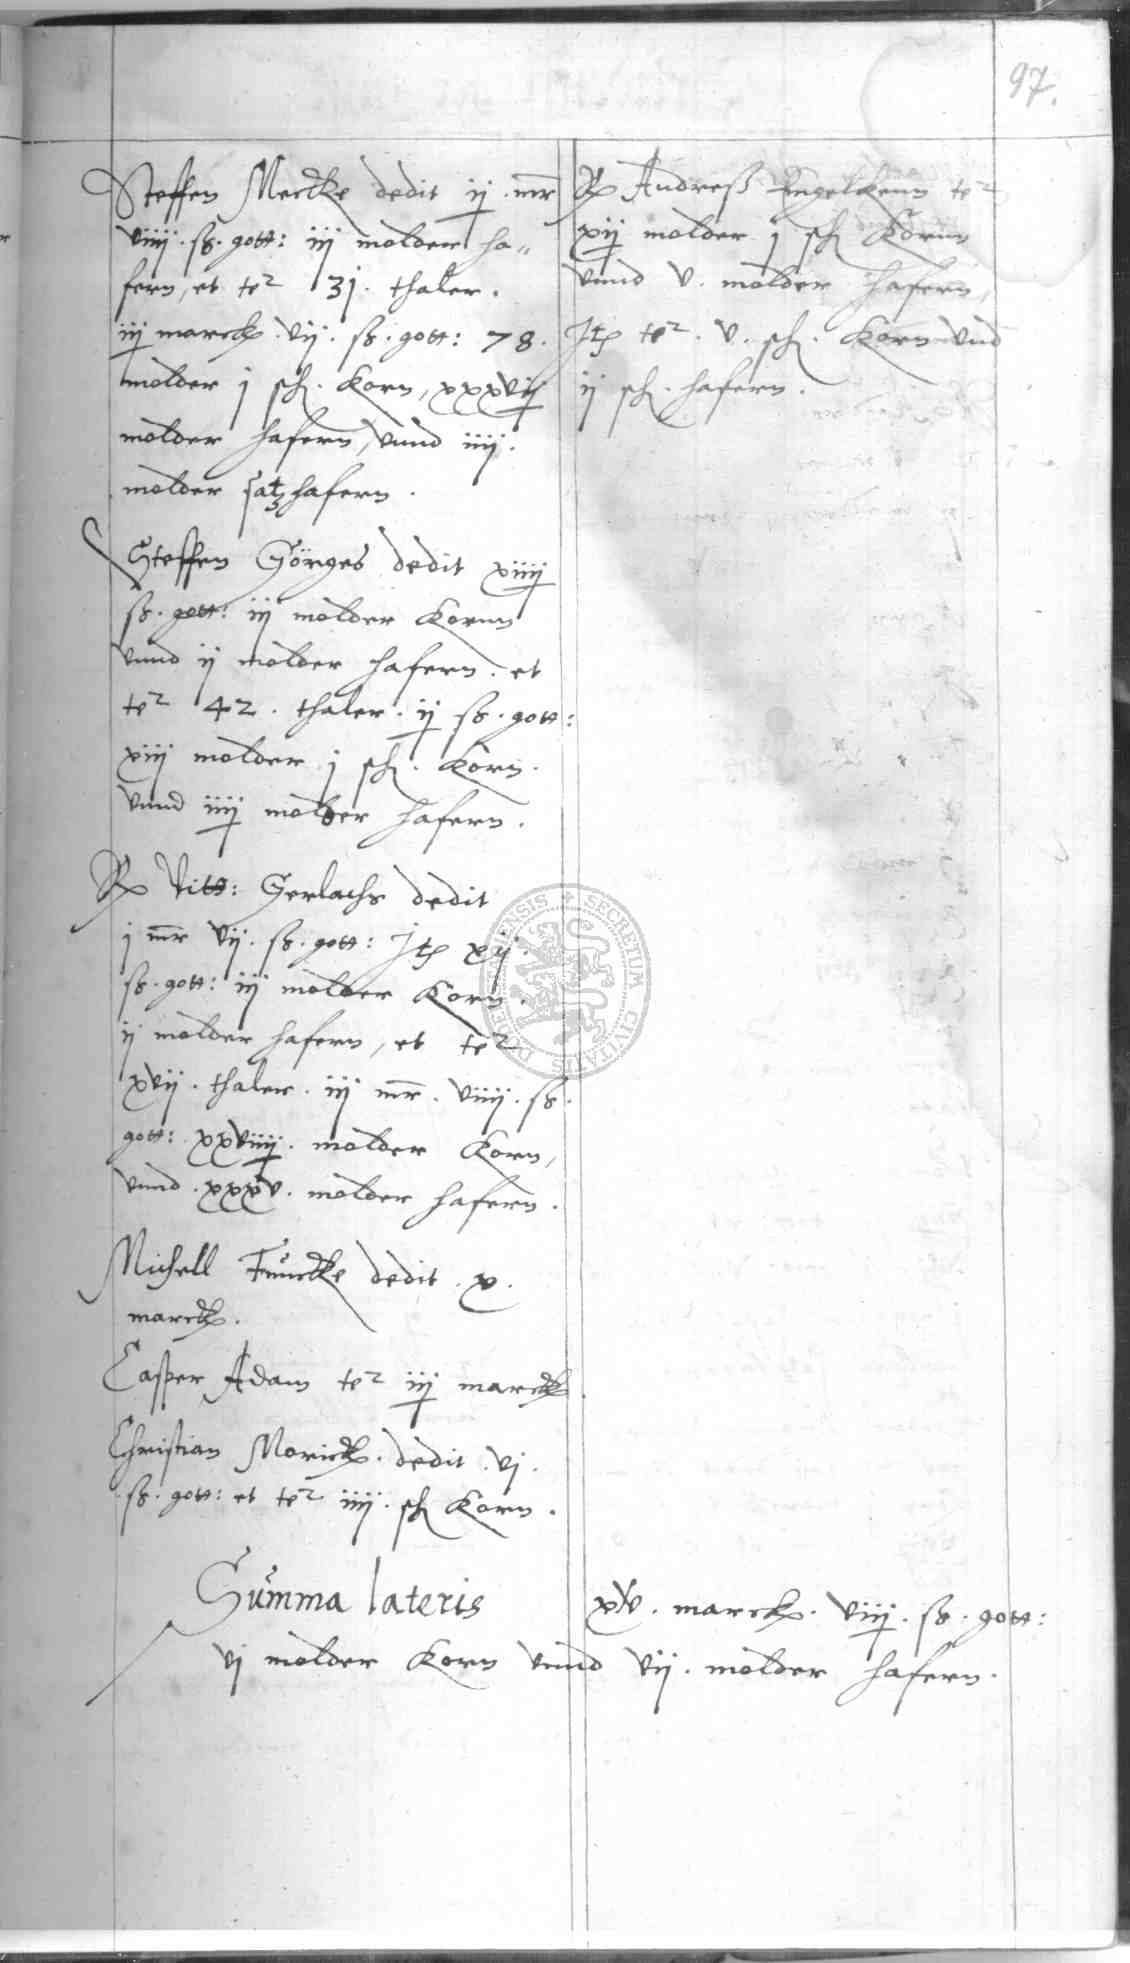 97.
Steffen Mercke dedit ij. mr
viiij. sß. gott: iij molder ha„
fern, et te^r 31. thaler.
iij marck. vij. sß. gott: 78.
molder j sch. Korn, xxxvij
molder hafern, vnnd iiij.
molder satzhafern.
Steffen Görges dedit xiiij
sß. gott: iij molder Kornn
vnnd ij molder hafern. et
te^r 42. thaler. ij sß. gott:
xiij molder j sch. Korn.
vnnd iiij molder hafern.
Vitt: Gerlachs dedit
j mr vij. sß. gott: It xij.
sß. gott: iij molder Korn.
ij molder hafern, et te^r
xvij. thaler. iij mr. viiij. sß.
gott: xxviiij. molder Korn,
vnnd. xxxv. molder hafern.
Michell Funcke dedit. x.
marck.
Casper Adam te^r iij marck.
Christian Morick. dedit. vj.
sß. gott: et te^r iiij. sch Korn.
Andreß Engelkenn te^r
xij molder j sch Kornn
vnnd v. molder hafern,
It te^r. v. sch. Korn vnd
ij sch. hafern.
Summa lateris xv. marck. viij. sß. gott:
vj molder Korn vnnd vij. molder hafern.
SECRETUM CIVITATIS